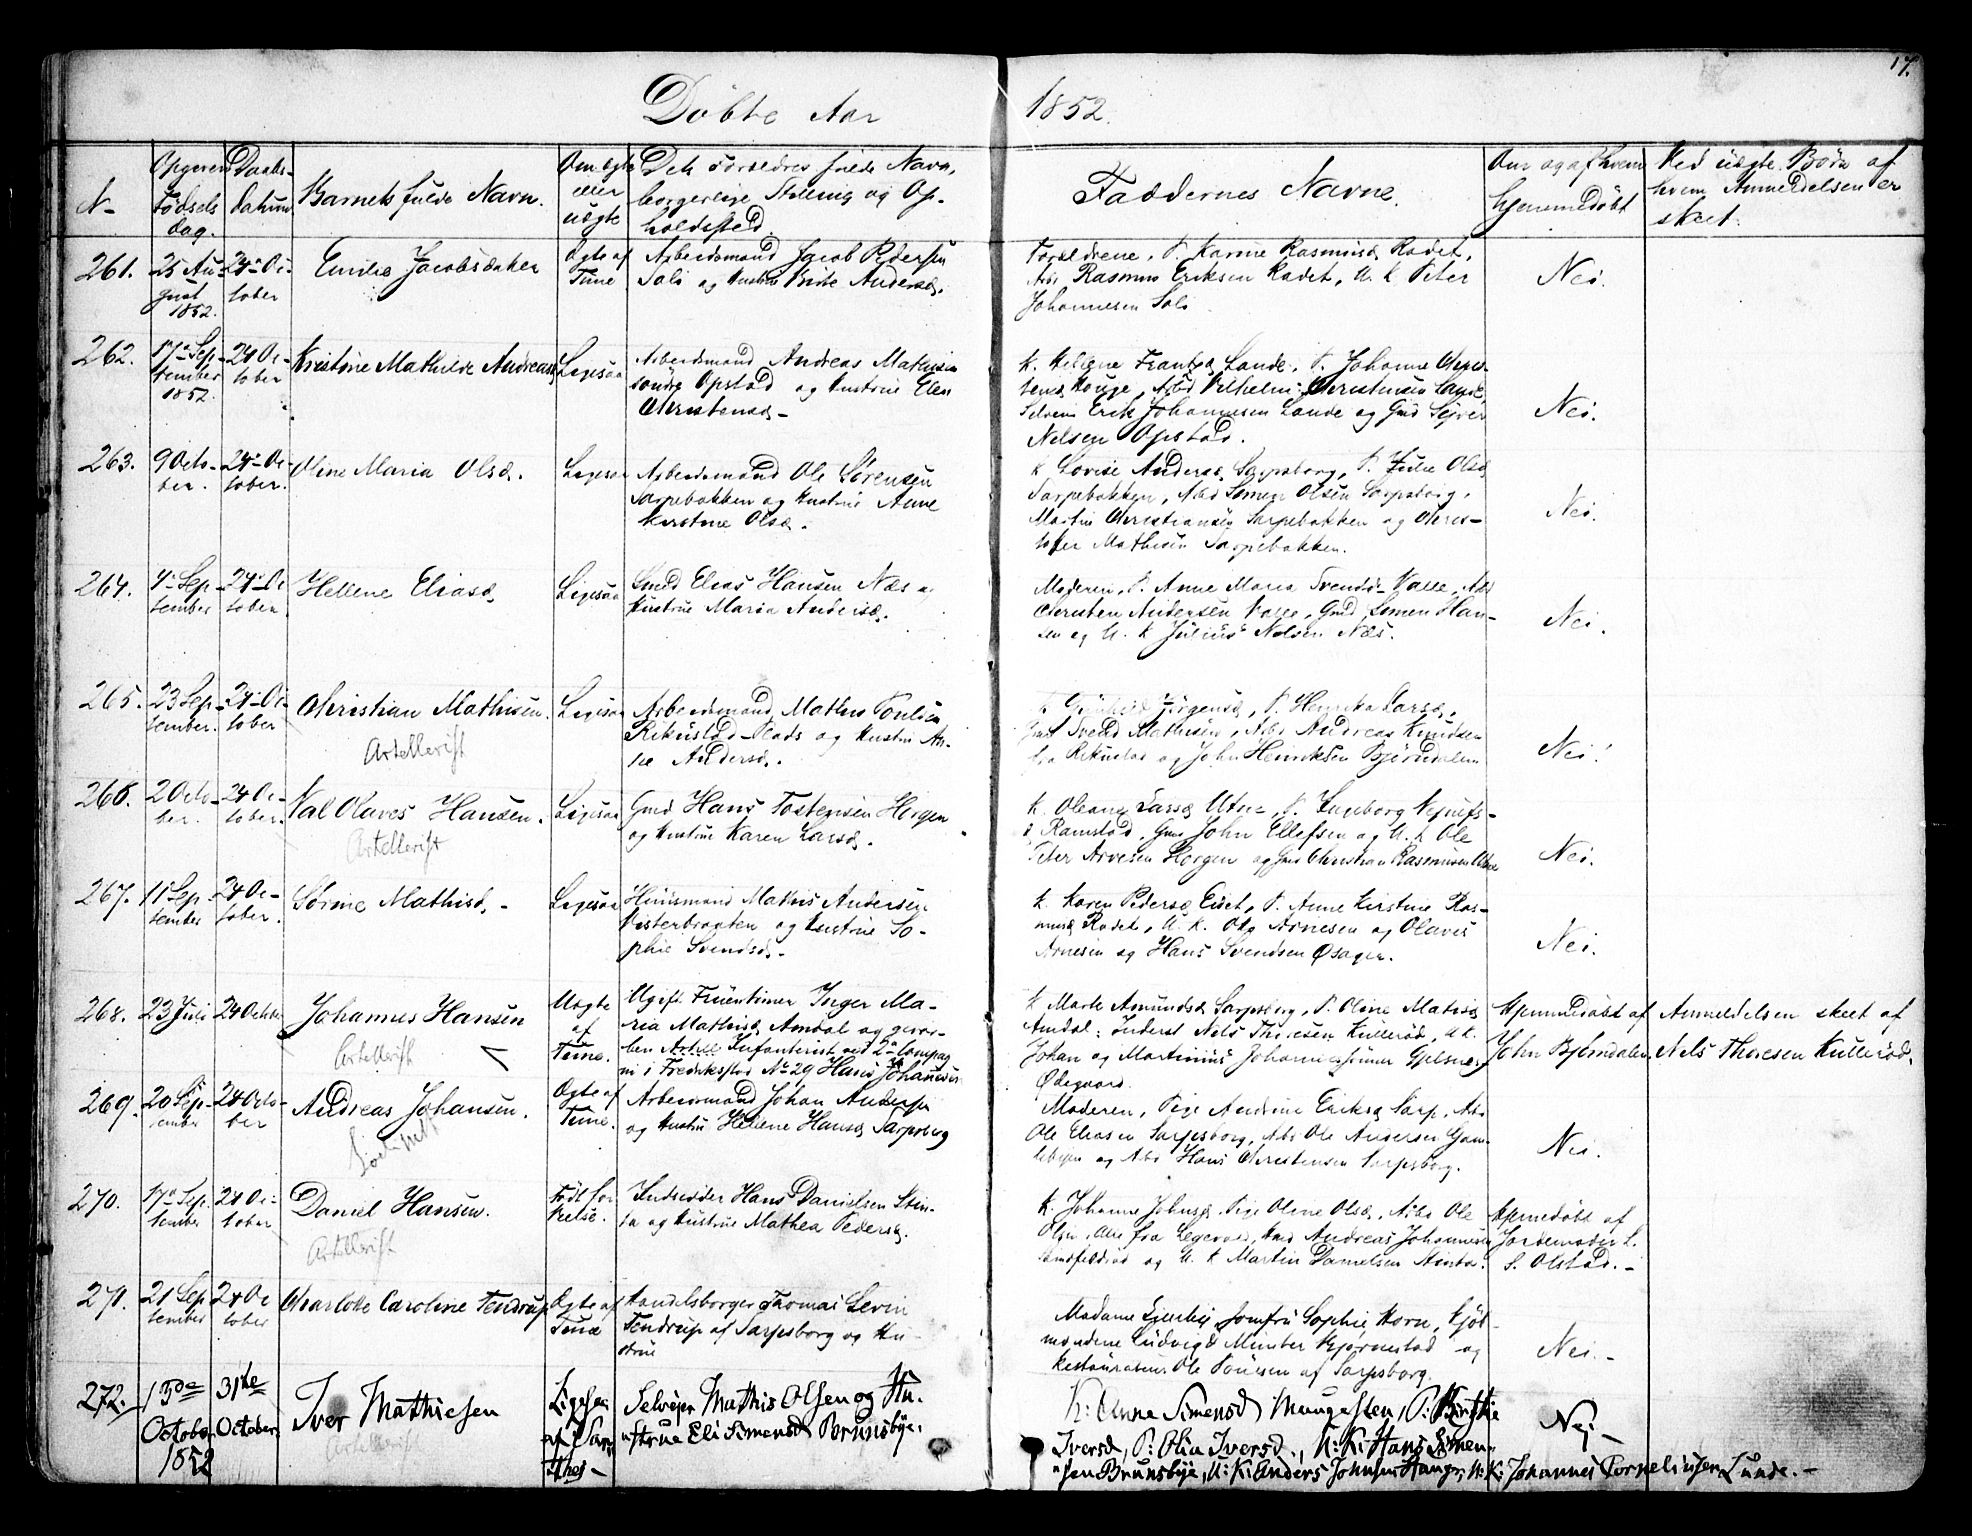 17.
Døbte Aar 1852.
N-
Opgiven Fødsels dag.
Daabs-datum
Barnets fulde Navn.
Om ægte eller uægte
Det Forældres fulde Navn, borgerlige Stilling og Opholdsted.
Faddernes Navne.
Om og af hvem hjemmedøbt
Ved uægte Børn af hvem Anmeldelsen er skeet.
261.
25 August 1852.
24 October
Emilie Jacobsdatter
Ægte af Tune
Arbeidsmand Jacob Pedersen
Soli og Hustrue Anders.
Forældrene, P. Karine Rasmusd. Rodet,
Rasmus Eriksen Rodet, U. k Peter
Johannesen Soli
Nei.
262.
17 September 1852.
24 October
Kristine Mathilde Andreasd
Ligesaa
Arbeidsmand Andreas Mathisen
søndre Opstad og Hustrue Elen
Christensd -
K. Helene Lande, P. Johanne
Houge, Arbd Vilhelm Christensen Lande,
Selveier Erik Johannesen Lande og Gmd Sejver
Nelsen Opstad.
Nei.
263.
9 October.
24 October.
Oline Maria Olsd.
Ligesaa
Arbeidsmand Ole Sørensen
Sarpebakken og Hustrue Anne
Kirstine Olsd.
K Lovise Andersd Sarpsborg, P. Julie Olsd
Sarpebakken, Arbd Simen Olsen Sarpsborg,
Martin Christiansen Sarpebakken og Chris-
tofer Mathisen Sarpebakken.
Nei.
264.
4 September
24 October
Hellene Eliasd.
Ligesaa
Gmd Elias Hansen Næs og
Hustrue Maria Andersd.
Moderen, P. Anne Maria Svendsd Valle, Arbd
Christen Andersen Valle, Gmd Simen Han-
sen og U. k Julius Nelsen Næs.
Nei.
265.
23 September.
24 October
Christian Mathisen.
Artellerist
Ligesaa
Arbeidsmand Mathis Poulsen
Rikustad Plads og Hustrue An-
ne Andersd.
Jørgensd, P. Henrika Larsd,
Gmd Svend Mathisen, Arbd Andreas Knudsen
fra Rikustad og John Henriksen Bjørndalen
Nei!
266.
2 October.
24 October.
Nal Olaves Hansen.
Artellerist
Ligesaa
Gmd Hans Tostensen Horgen
og Hustrue Karen Larsd.
K. Oleane Larsd Utne, P. Ingeborg
Ramstad, Gmd John Ellefsen og U. k Ole
Peter Arvesen Horgen og Gmd Christian Rasmusen Utne
Nei.
267.
11 September
24 October.
Sørine Mathisd. -
Ligesaa
Huusmand Mathis Andersen
Vesterbraaten og Hustrue So-
phie Svendsd. -
K. Karen Pedersd Eiset, P. Anne Kirstine Ras-
musd Rodet, U. K. Ole Arnesen og Olaves
Arnesen og Hans Svendsen Øsager.
Nei.
268.
23 Juli
24 October
Johannes Hansen
Artellerist
Uægte af Tune.
Ugift Fruentimer Inger Ma-
ria Mathisd Amdal og
Infanterist ved 2de Compag
ni i Fredriksstad No 29 Hans Johannesen
K Marte Amundsd Sarpsborg, P. Oline Mathisd
Amdal; Inderst Nels Thoresen Kullerød, U. K.
Johan og Martinius Johannesønner
Ødegaard.
Hjemmedøbt af John Bjørndalen
Anmeldelsen skeet af Nels Thoresen Kullerød.
269.
20 September
24 October
Andreas Johansen.
Ægte af Tune.
Arbeidsmand Johan Andersen
og Hustru Helene Hansd Sarpsborg
Moderen, Pige Andrine Eriksd Sarp, Arbd
Ole Eliasen Sarpsborg, Arbd Ole Andersen Gam-
lebyen og Arbd Hans Christensen Sarpsborg.
Nei.
270.
17 September
24 October
Daniel Hansen.
Artellerist
Indsidder Hans Danielsen
og Hustrue Mathea Pedersd.
K. Johanne Johnsd, Pige Oline Olsd, Arbd Ole
Olsen, Alle fra Andreas Johannesen
og U. k Martin Danielsen
Hjemmedøbt af Jordemoder L. S. Olstad. -
271.
21 September
24 October
Charlotte Caroline Tendrup
Ægte af Tune
Handelsborger Thomas Levin
Tendrup af Sarpsborg og Hu-
strue
Madame Jomfru Sophie Horn, Kjøb-
mændene Ludvig Münster Bjørnestad og
Restaurateur Ole Poulsen af Sarpsborg.
Nei. -
272.
13de October 1852
31te October.
Iver Mathiesen
Artellerist
Ligesaa
Selveier Mathis Olsen og Hu-
strue Eli Simensd Brunsbye.
K: Anne Simensd Haugesten, P: Kirstie
Iversd, P: Olia Iversd., U: K: Hans Simen-
sen Brunsbye, U: K: Anders Johnsen Hauge, U: K: Johannes Corneliussen Lunde. -
Nej -